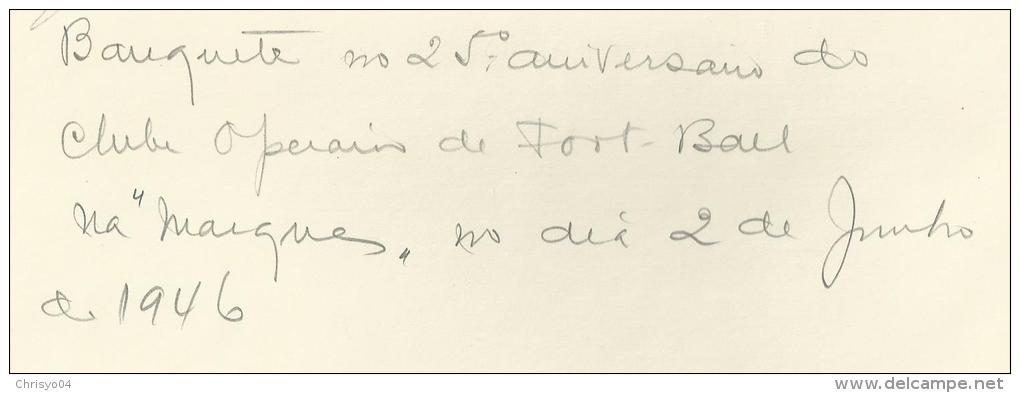 Banquete no 25.º aniversario do
Clube Operario de Foot-Ball
na "Marques" no dia 2 de Junho
de 1946
Chrisyo04
www.delcampe.net